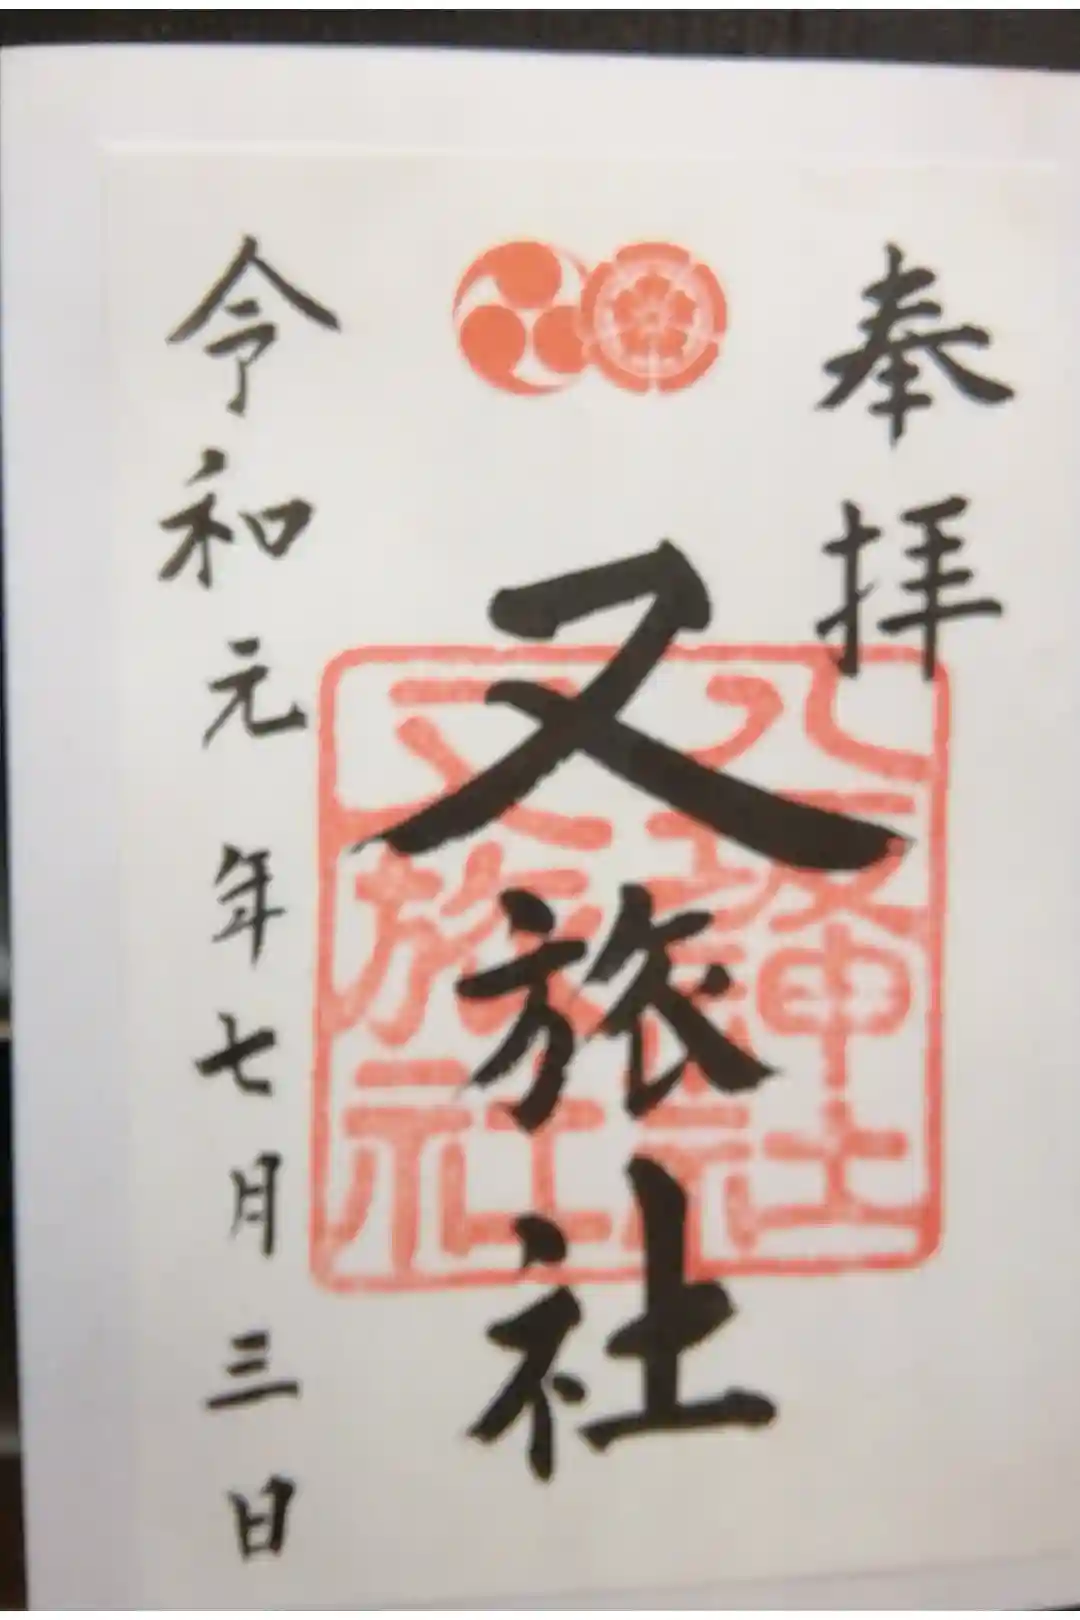 奉拝
又旅社
八坂神社
又旅社
令和元年七月三日